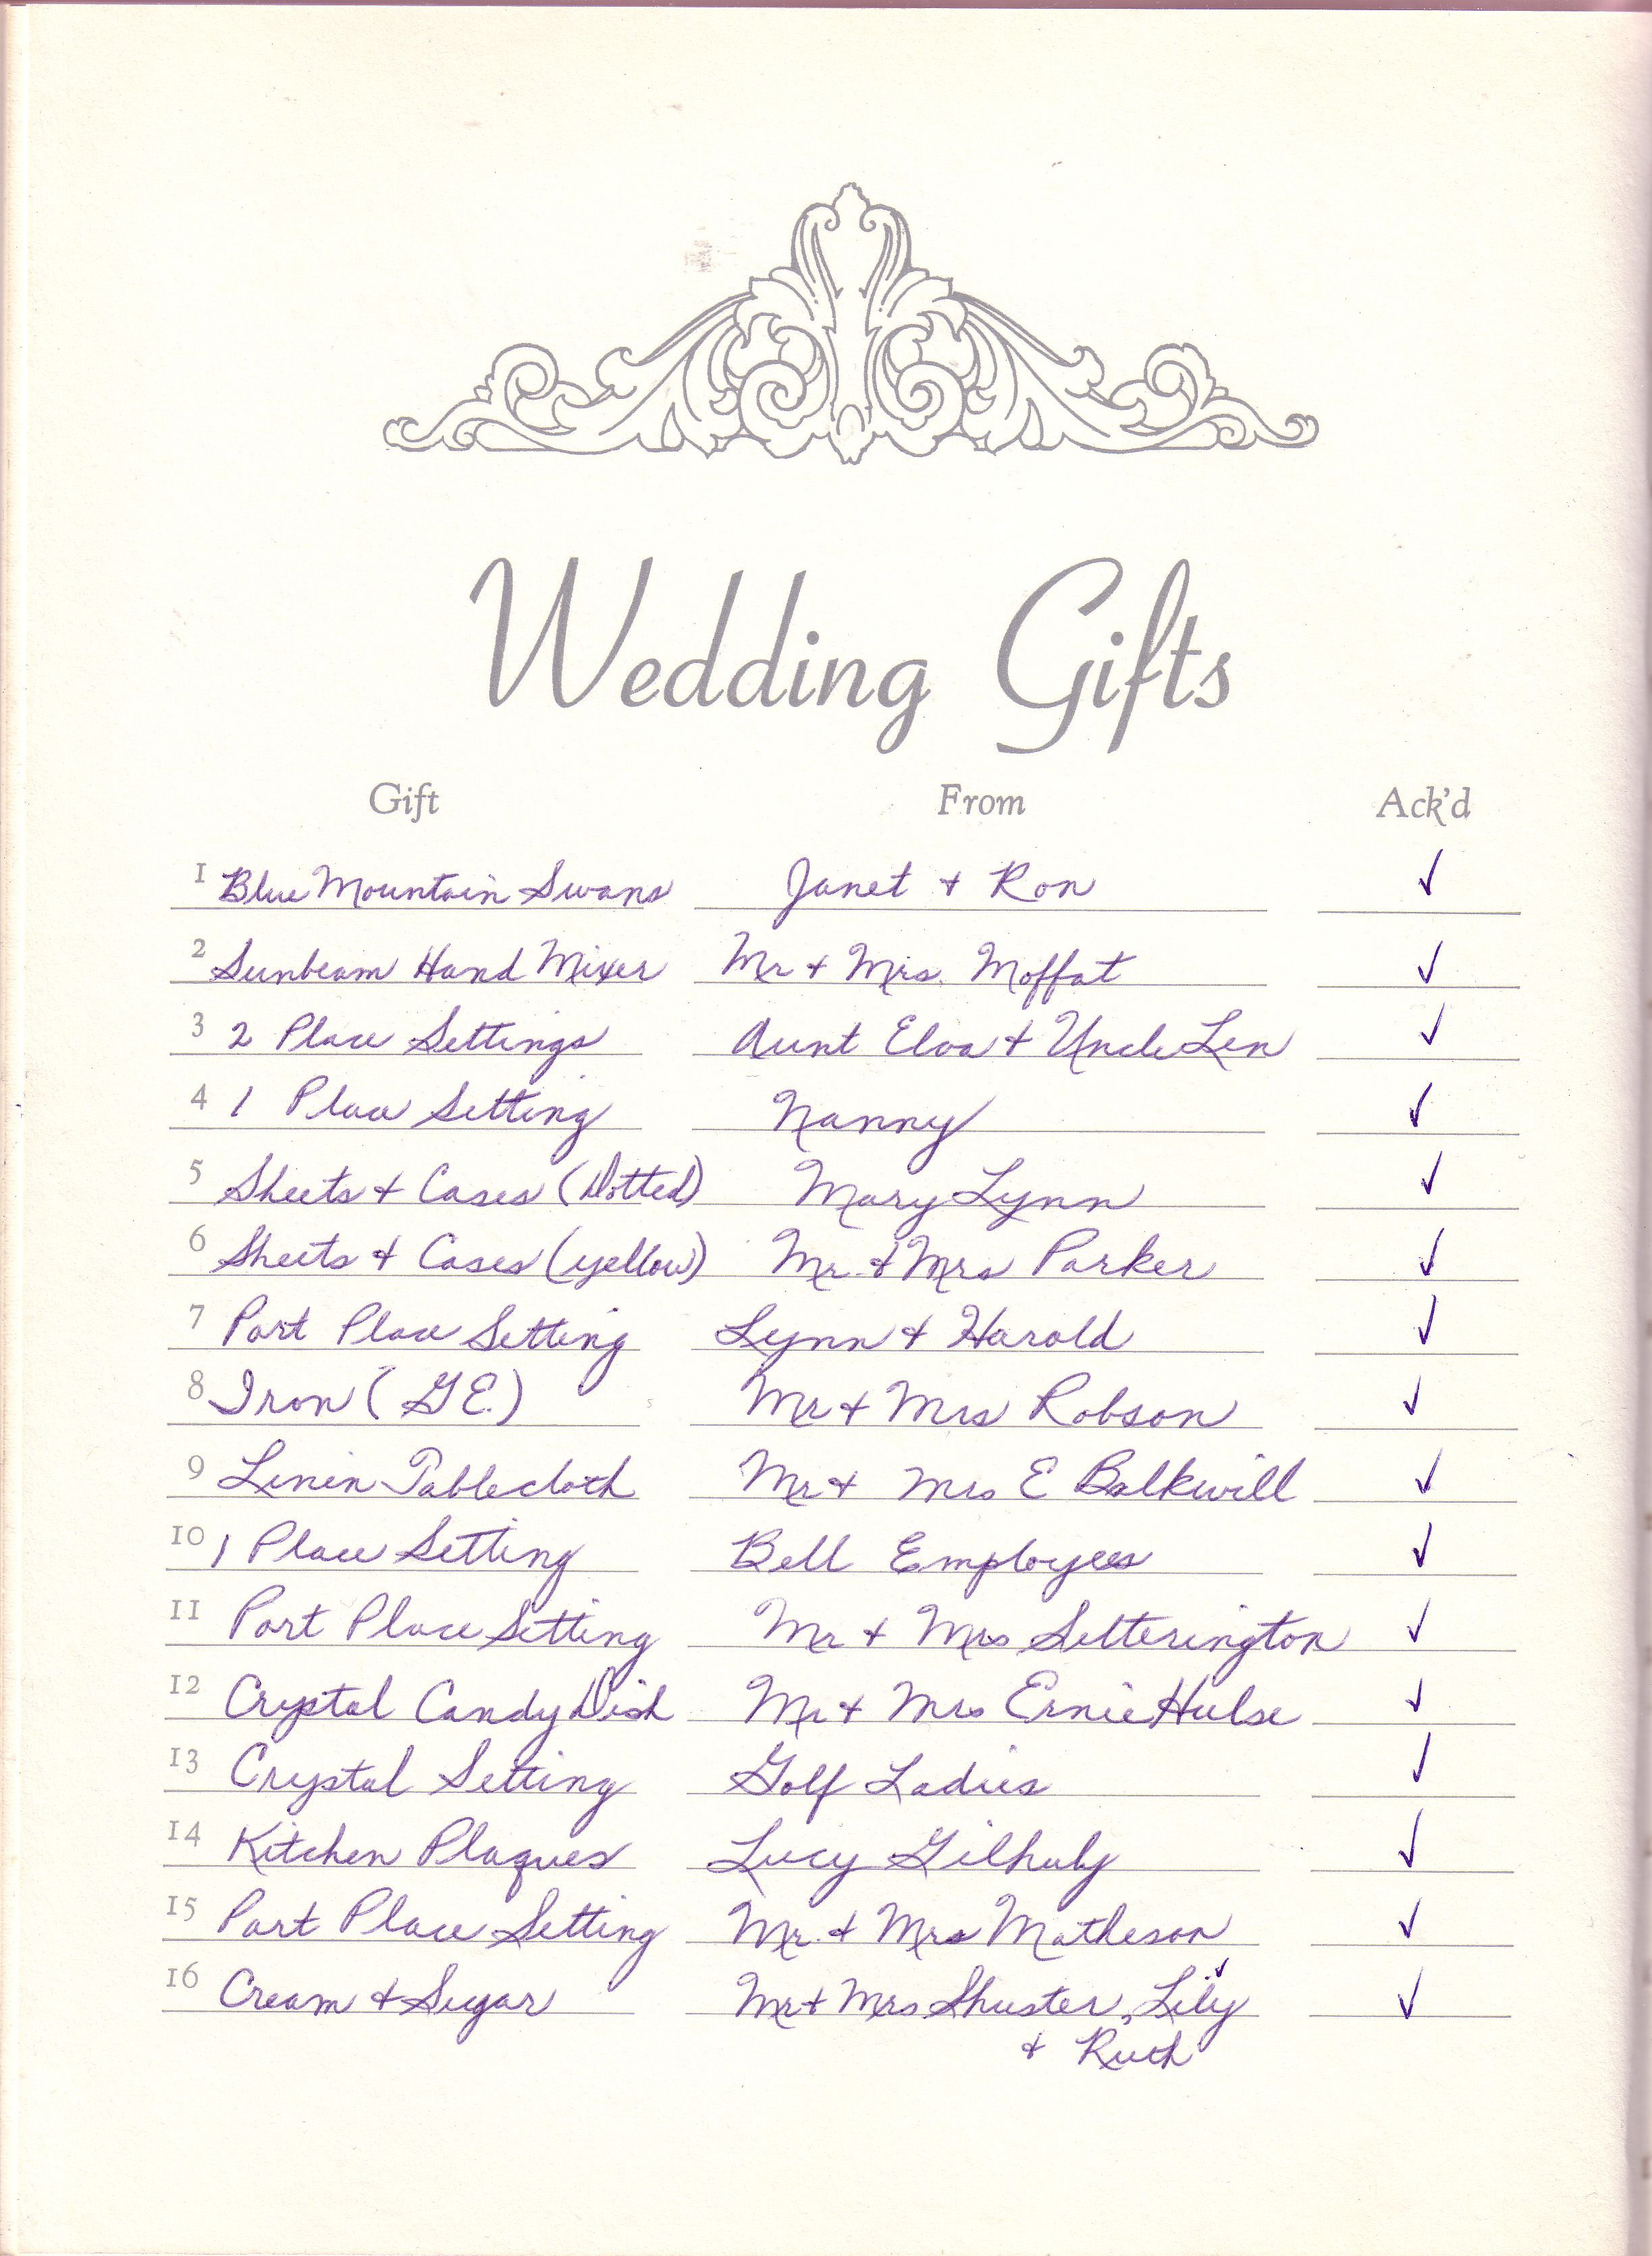 Wedding Gifts
Gift From Ack'd
1 Blue Mountain Swans Janet + Ron ✓
2 Sunbeam Hand Mixer Mr + Mrs. Moffat ✓
3 2 Place Settings Aunt Elva + Uncle Len ✓
4 1 Place Setting Nanny ✓
5 Sheets + Cases (Dotted) Mary Lynn ✓
6 Sheets + Cases (yellow) Mr. + Mrs Parker ✓
7 Part Place Setting Lynn + Harold ✓
8 Iron (GE.) Mr + Mrs Robson ✓
9 Linen Tablecloth Mr + Mrs E Balkwill ✓
10 1 Place Setting Bell Employees ✓
11 Part Place Setting Mr + Mrs Setterington ✓
12 Crystal Candy Dish Mr + Mrs Ernie Hulse ✓
13 Crystal Setting Golf Ladies ✓
14 Kitchen Plaques Lucy Gilhuly ✓
15 Part Place Setting Mr. + Mrs Matheson ✓
16 Cream + Sugar Mr + Mrs Shuster, Lily ✓
+ Ruth